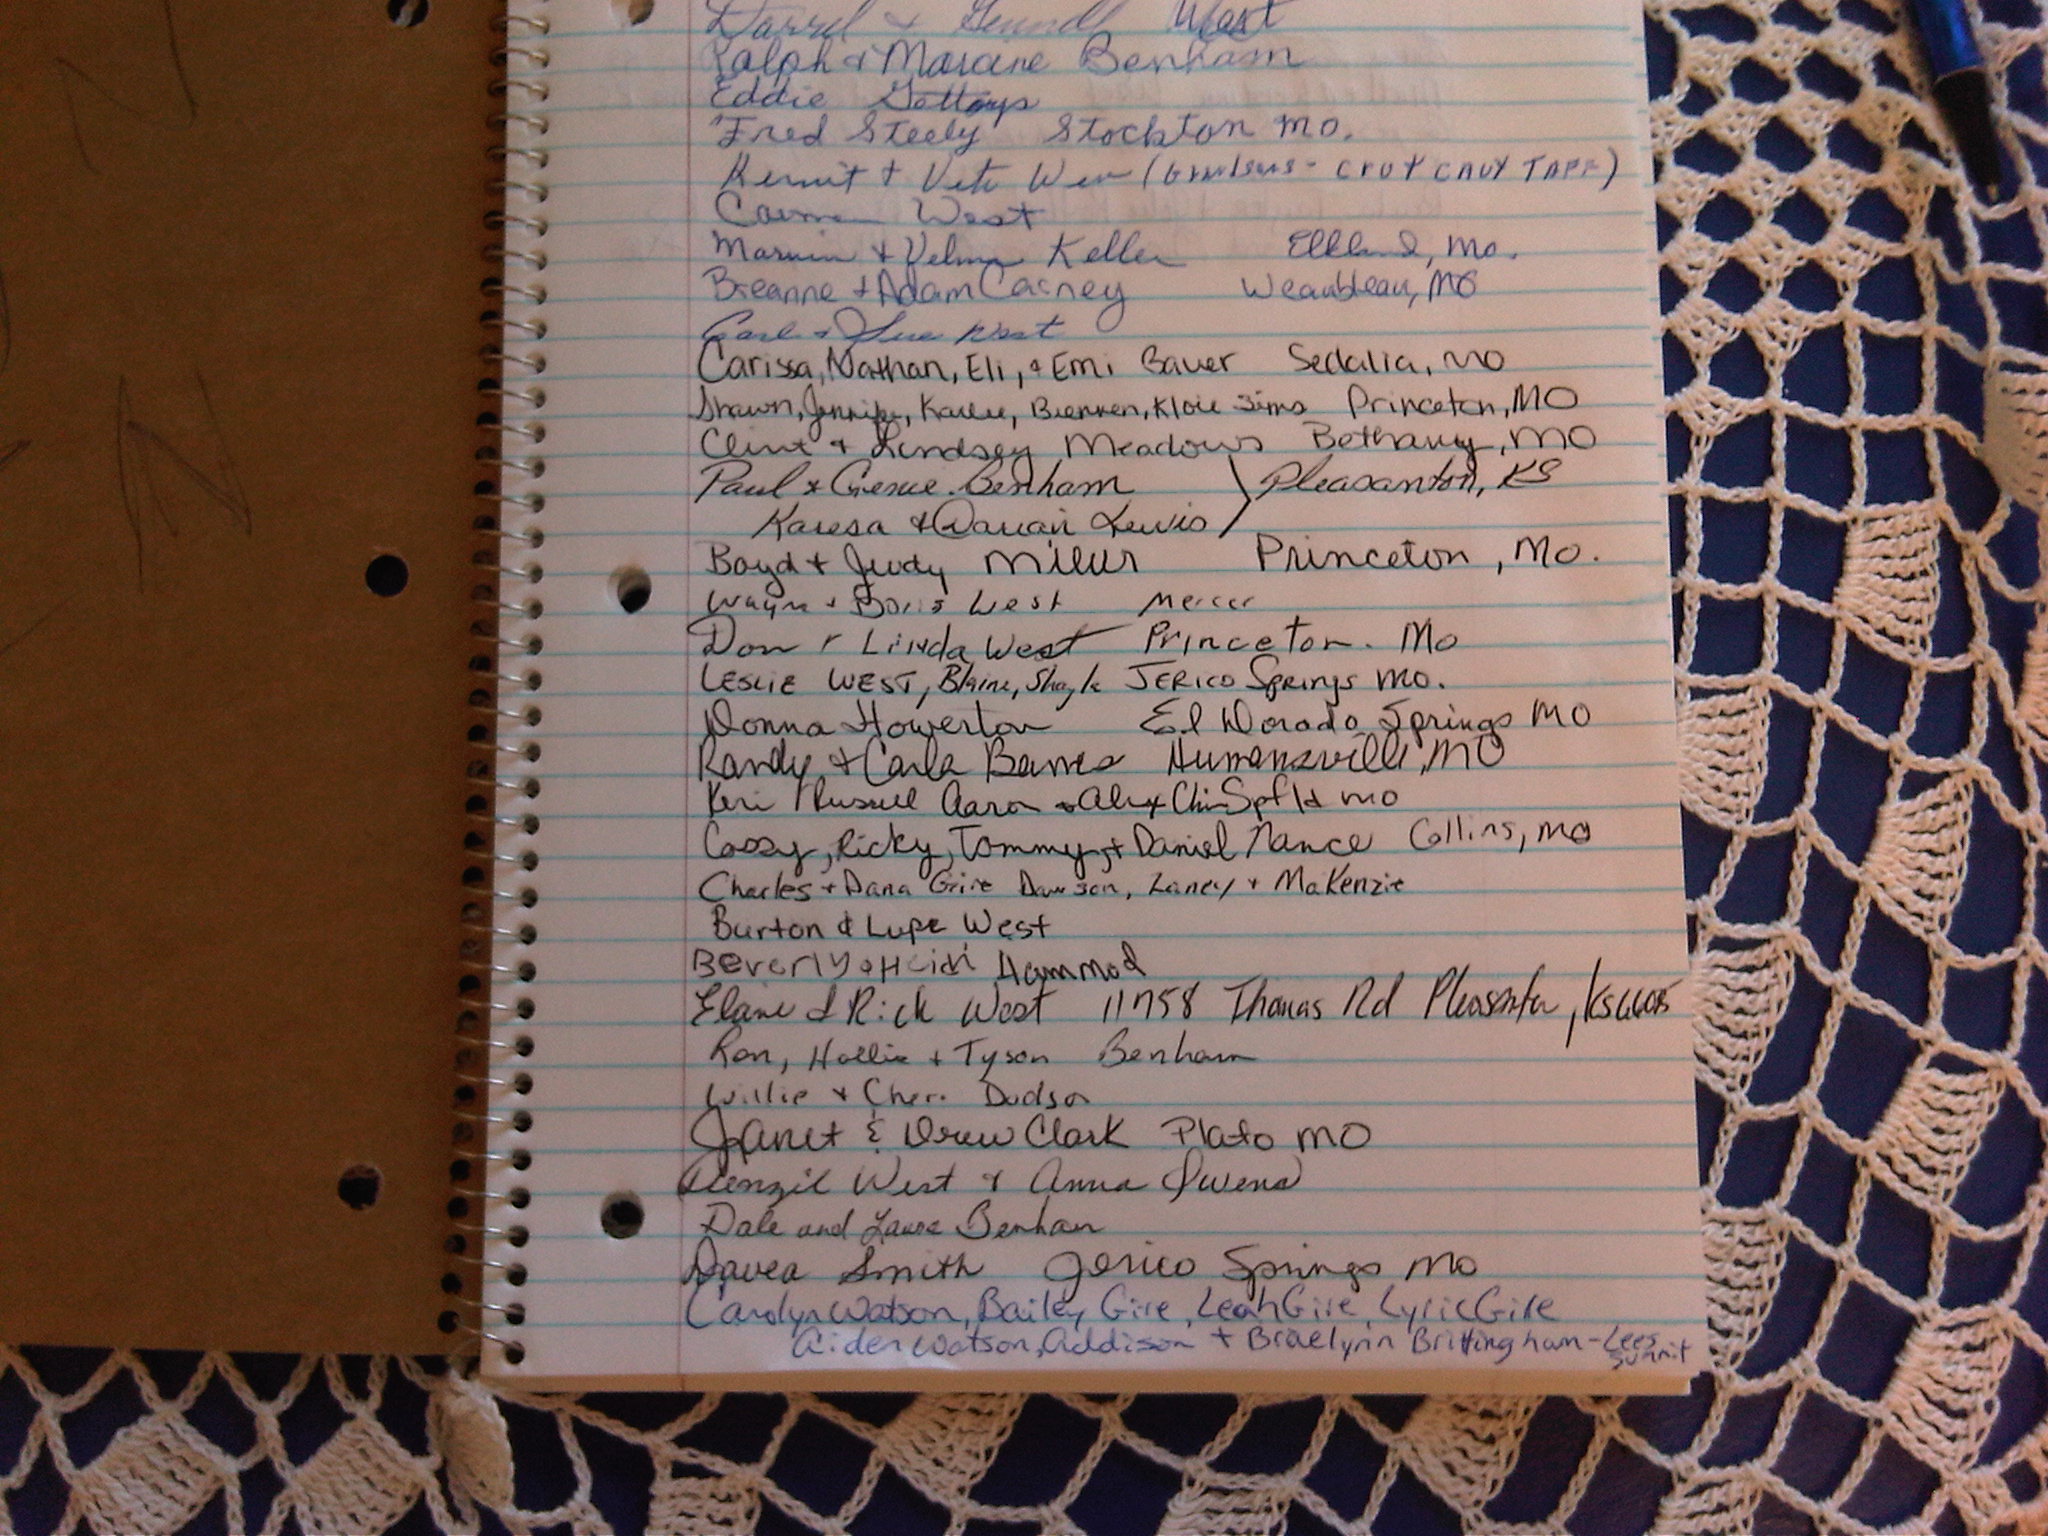 Darrel + West
Ralph & Maxine Benham
Eddie Gettings
Fred Steely Stockton MO.
Kermit + West (Grandsons - CODY TAPP)
Carmen West
Marvin & Velma Keller Elkland, Mo.
Breanne + Adam Carney Weaubleau, MO
Earl & Sue West
Carissa, Nathan, Eli, & Emi Bauer Sedalia, MO
Shawn, Jennifer, Kaylee, Brennen, Kloie Sims Princeton, MO
Clint & Lindsey Meadows Bethany, MO
Paul & Genie Benham ) Pleasanton, KS
Karesa & Darian Lewis
Boyd + Judy Miller Princeton, Mo.
Wayne + Doris West Mercer
Don & Linda West Princeton. Mo
LESLIE WEST, Blaine, Shayla JERICO SPRINGS MO.
Donna Howerton El Dorado Springs MO
Randy & Carla Barnes Humansville, MO
Keri Russell Aaron & Alex Spfld MO
Cassy, Ricky, Tommy, + Daniel Nance Collins, MO
Charles + Dana Gire Dawson, Laney + MaKenzie
Burton & Lupe West
Beverly & Heidi Hammod
Elaine & Rick West 11758 Thomas Rd Pleasanton, KS
Ron, Hollie + Tyson Benham
Willie & Cheri Dodson
Janet & Drew Clark Plato MO
Denzil West & Anna Owens
Dale and Laura Benham
Davea Smith Jerico Springs MO
Carolyn Watson, Bailey Gire, Leah Gire, Lyric Gire
Aiden Watson, Addison + Braelynn Brittingham - Lees
Summit